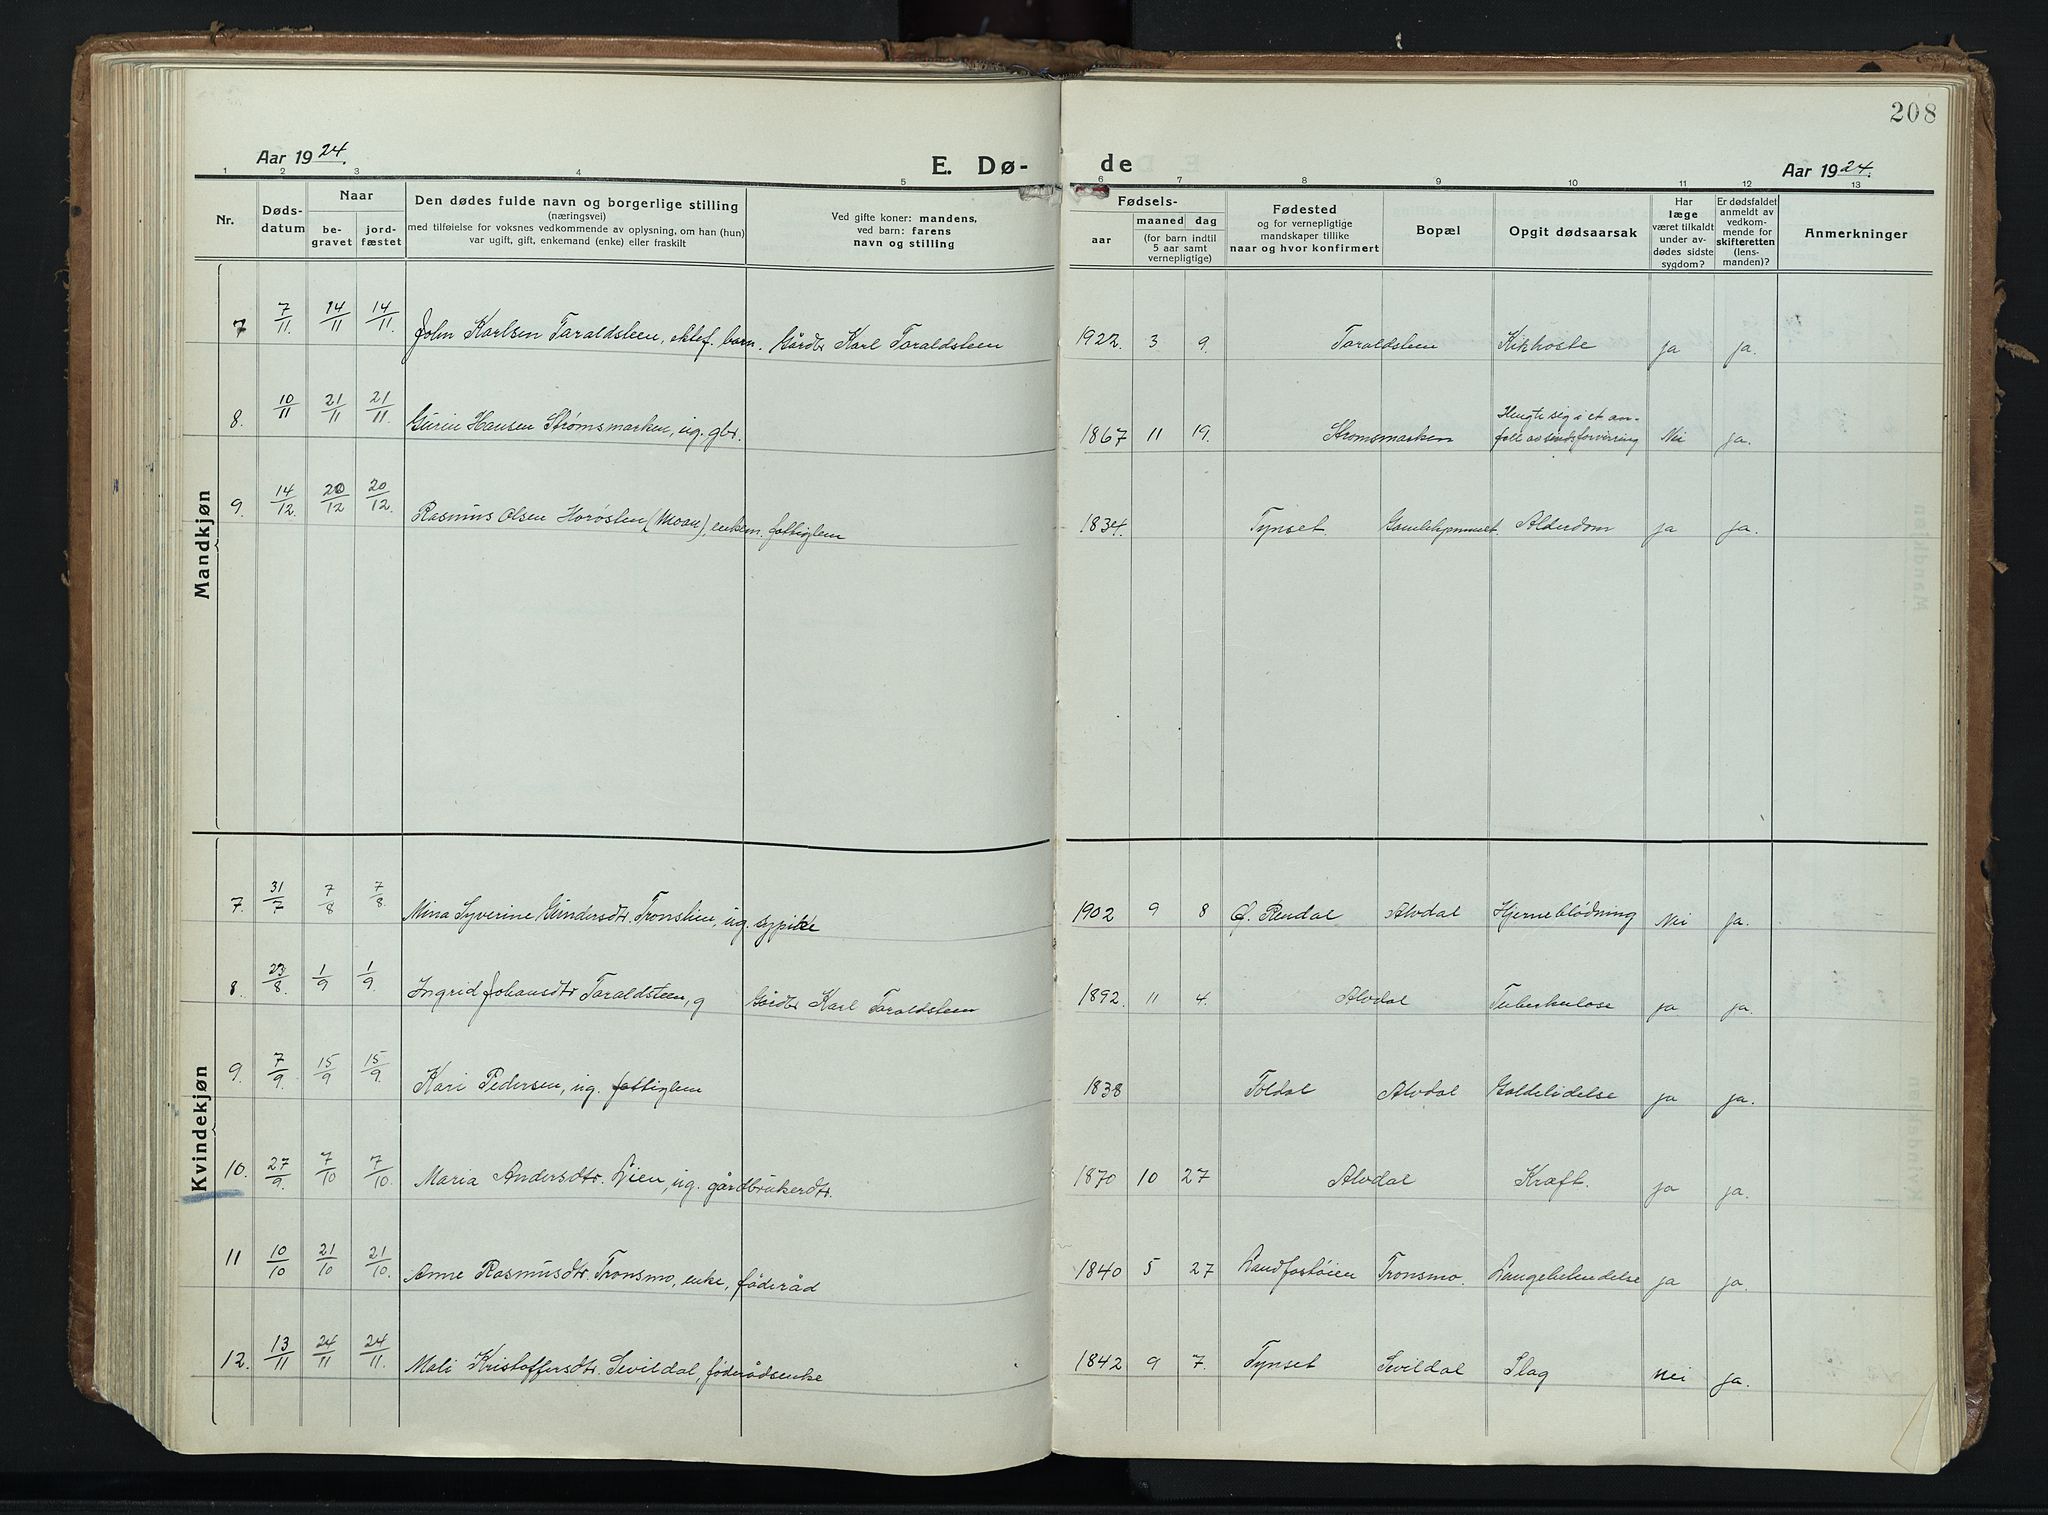 208
Aar 1924.
E. Dø-
de
Aar 1924.
1 2 3 4 5 6 7 8 9 10 11 12 13
Nr.
Døds-
datum
Naar
be-
gravet
jord-
fæstet
Den dødes fulde navn og borgerlige stilling
(næringsvei)
med tilføielse for voksnes vedkommende av oplysning, om han (hun)
var ugift, gift, enkemand (enke) eller fraskilt
Ved gifte koner: mandens,
ved barn: farens
navn og stilling
Fødsels-
aar
maaned
dag
(for barn indtil
5 aar samt
vernepligtige)
Fødested
og for vernepligtige
mandskaper tillike
naar og hvor konfirmert
Bopæl
Opgit dødsaarsak
Har
læge
været tilkaldt
under av-
dødes sidste
sygdom?
Er dødsfaldet
anmeldt av
vedkom-
mende for
skifteretten
(lens-
manden)?
Anmerkninger
Mandkjøn
7 7/11. 14/11 14/11. John Karlsen Taraldsteen, ektef. barn. Gårdbr Karl Taraldsteen 1922. 3 9. Taraldsteen Kikhoste ja ja.
8. 10/11 21/11 21/11. Hansen Strømsmarken, ug. gbr. 1867 11 19. Strømsmarken Hengte sig i et an-
fall av sindsforvirring Nei ja.
9. 14/12. 20/12 20/12. Rasmus Olsen (Moan), enkem. fattiglem 1834. Tynset. Alderdom ja ja.
Kvindekjøn
7. 31/7 7/8 7/8. Mina Syverine Gundersdtr. Tronslien, ug. sypike 1902 9 8 Ø. Rendal Alvdal Hjerneblödning Nei ja.
8. 23/8. 1/9 1/9. Ingrid Johansdtr Taraldsteen, g Gårdbr Karl Taraldsteen 1892. 11 4. Alvdal Tuberkulose ja ja.
9. 7/9. 15/9 15/9. Kari Pedersen, ug. fattiglem 1838 Foldal Alvdal Galdelidelse ja ja.
10. 27/9. 7/10 7/10. Maria Andersdtr. Lien, ug. gårdbrukerdtr. 1870 10 27 Alvdal Kræft. ja ja.
11 10/10 21/10 21/10. Anne Rasmusdtr Tronsmo, enke, föderåd 1840 5 27 Tronsmo. ja ja.
12. 13/11 24/11 24/11. Mali Kristoffersdtr. Sevildal, föderådsenke 1842 9 7. Tynset Sevildal Slag nei ja.